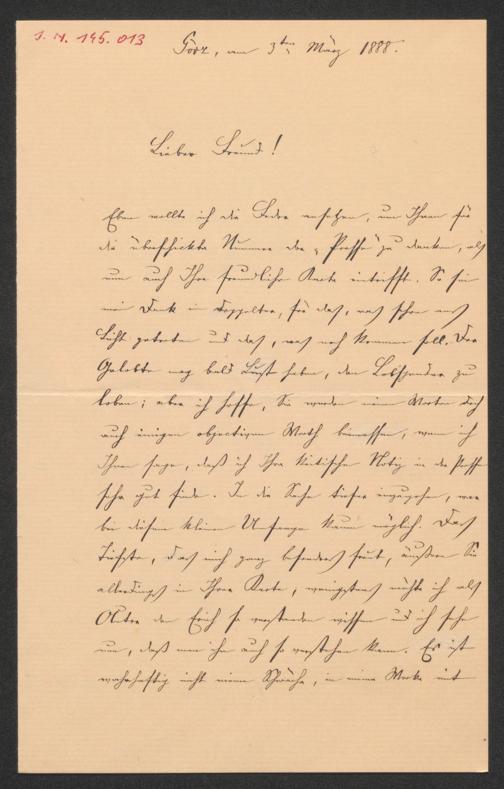 J. N. 145.013
Görz, am 3ten März 1888.
Lieber Freund!
Eben wollte ich die Feder ansetzen, um Ihnen für
die überschickte Nummer der „Presse" zu danken, als
nun auch Ihre freundliche Karte eintrifft. So sei
mein Dank ein doppelter, für das, was schon ans
Licht getreten und das, was noch kommen soll. Der
Gelobte mag bald Lust haben, den Lobspender zu
loben; aber ich hoffe, Sie werden meinen Worten doch
auch einigen objectiven Werth beimessen, wenn ich
Ihnen sage, daß ich Ihre kritische Notiz in der Presse
sehr gut finde. In die Sache tiefer einzugehen, war
bei diesem kleinen Umfange kaum möglich. Das
Tiefste, das mich ganz besonders freut, äußern Sie
allerdings in Ihrer Karte; wenigstens möchte ich als
Autor den Erich so verstanden wissen und ich sehe
nun, daß man ihn auch so verstehen kann. Es ist
wahrhaftig nicht meine Schwäche, in meine Werke mit